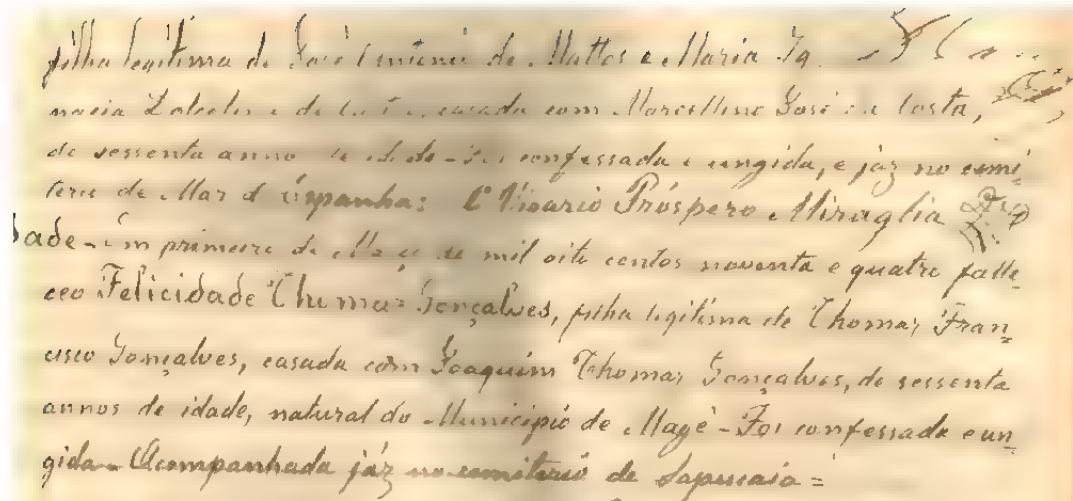 filha legitima de José Antonio de Mattos e Maria Ig
nacia de casada com Marcellino José da Costa,
de sessenta anno de idade - Foi confessada e ungida, e jáz no cemi-
terio de Mar d'Espanha: O Vicario Próspero Miraglia
dade - Em primeiro de Março de mil oito centos noventa e quatro falle-
ceo Felicidade Thomaz Gonçalves, filha legitima de Thomaz Fran-
cisco Gonçalves, casada com Joaquim Thomaz Gonçalves, de sessenta
annos de idade, natural do Municipio de Magé - Foi confessada e un-
gida - Acompanhada jáz no cemiterio de Sapucaia =